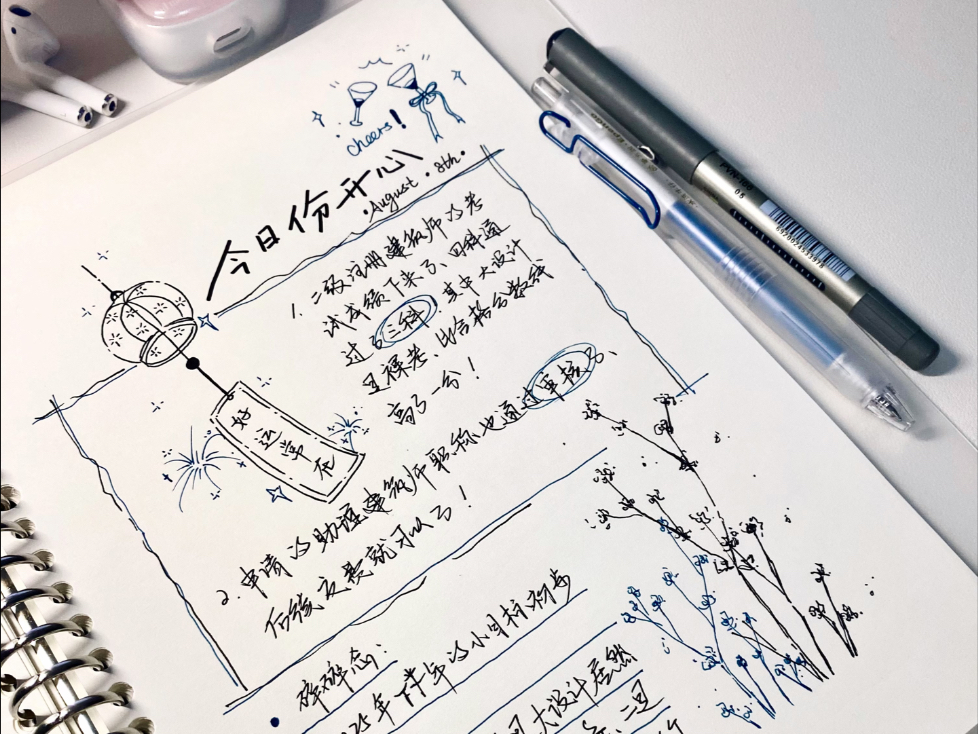 cheers!
今日份开心
·August·8th·
1. 二级注册建筑师的考
试成绩下来了、四科通
过了三科 其中大设计
是裸考、比合格分数线
高了一分！
好运常在
2. 申请的助理建筑师职称也通过审核了、
后续交费就可以了！
碎碎念：
25年下半年的小目标初步
大设计居然
二是